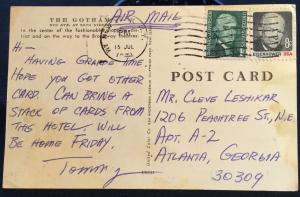 THE GOTHAM
In the center of the fashionable
trict and on way to the Broadway theatres
AIR MAIL
Hi -
Having grand time.
Hope you got other
card. Can bring a
stack of cards from
this hotel. Will
be home Friday.
Tommy
15 JUL
EISENHOWER · USA
8c
POST CARD
Mr. Cleve Leshikar
1206 Peachtree St., N.E.
Apt. A-2
Atlanta, Georgia
30309